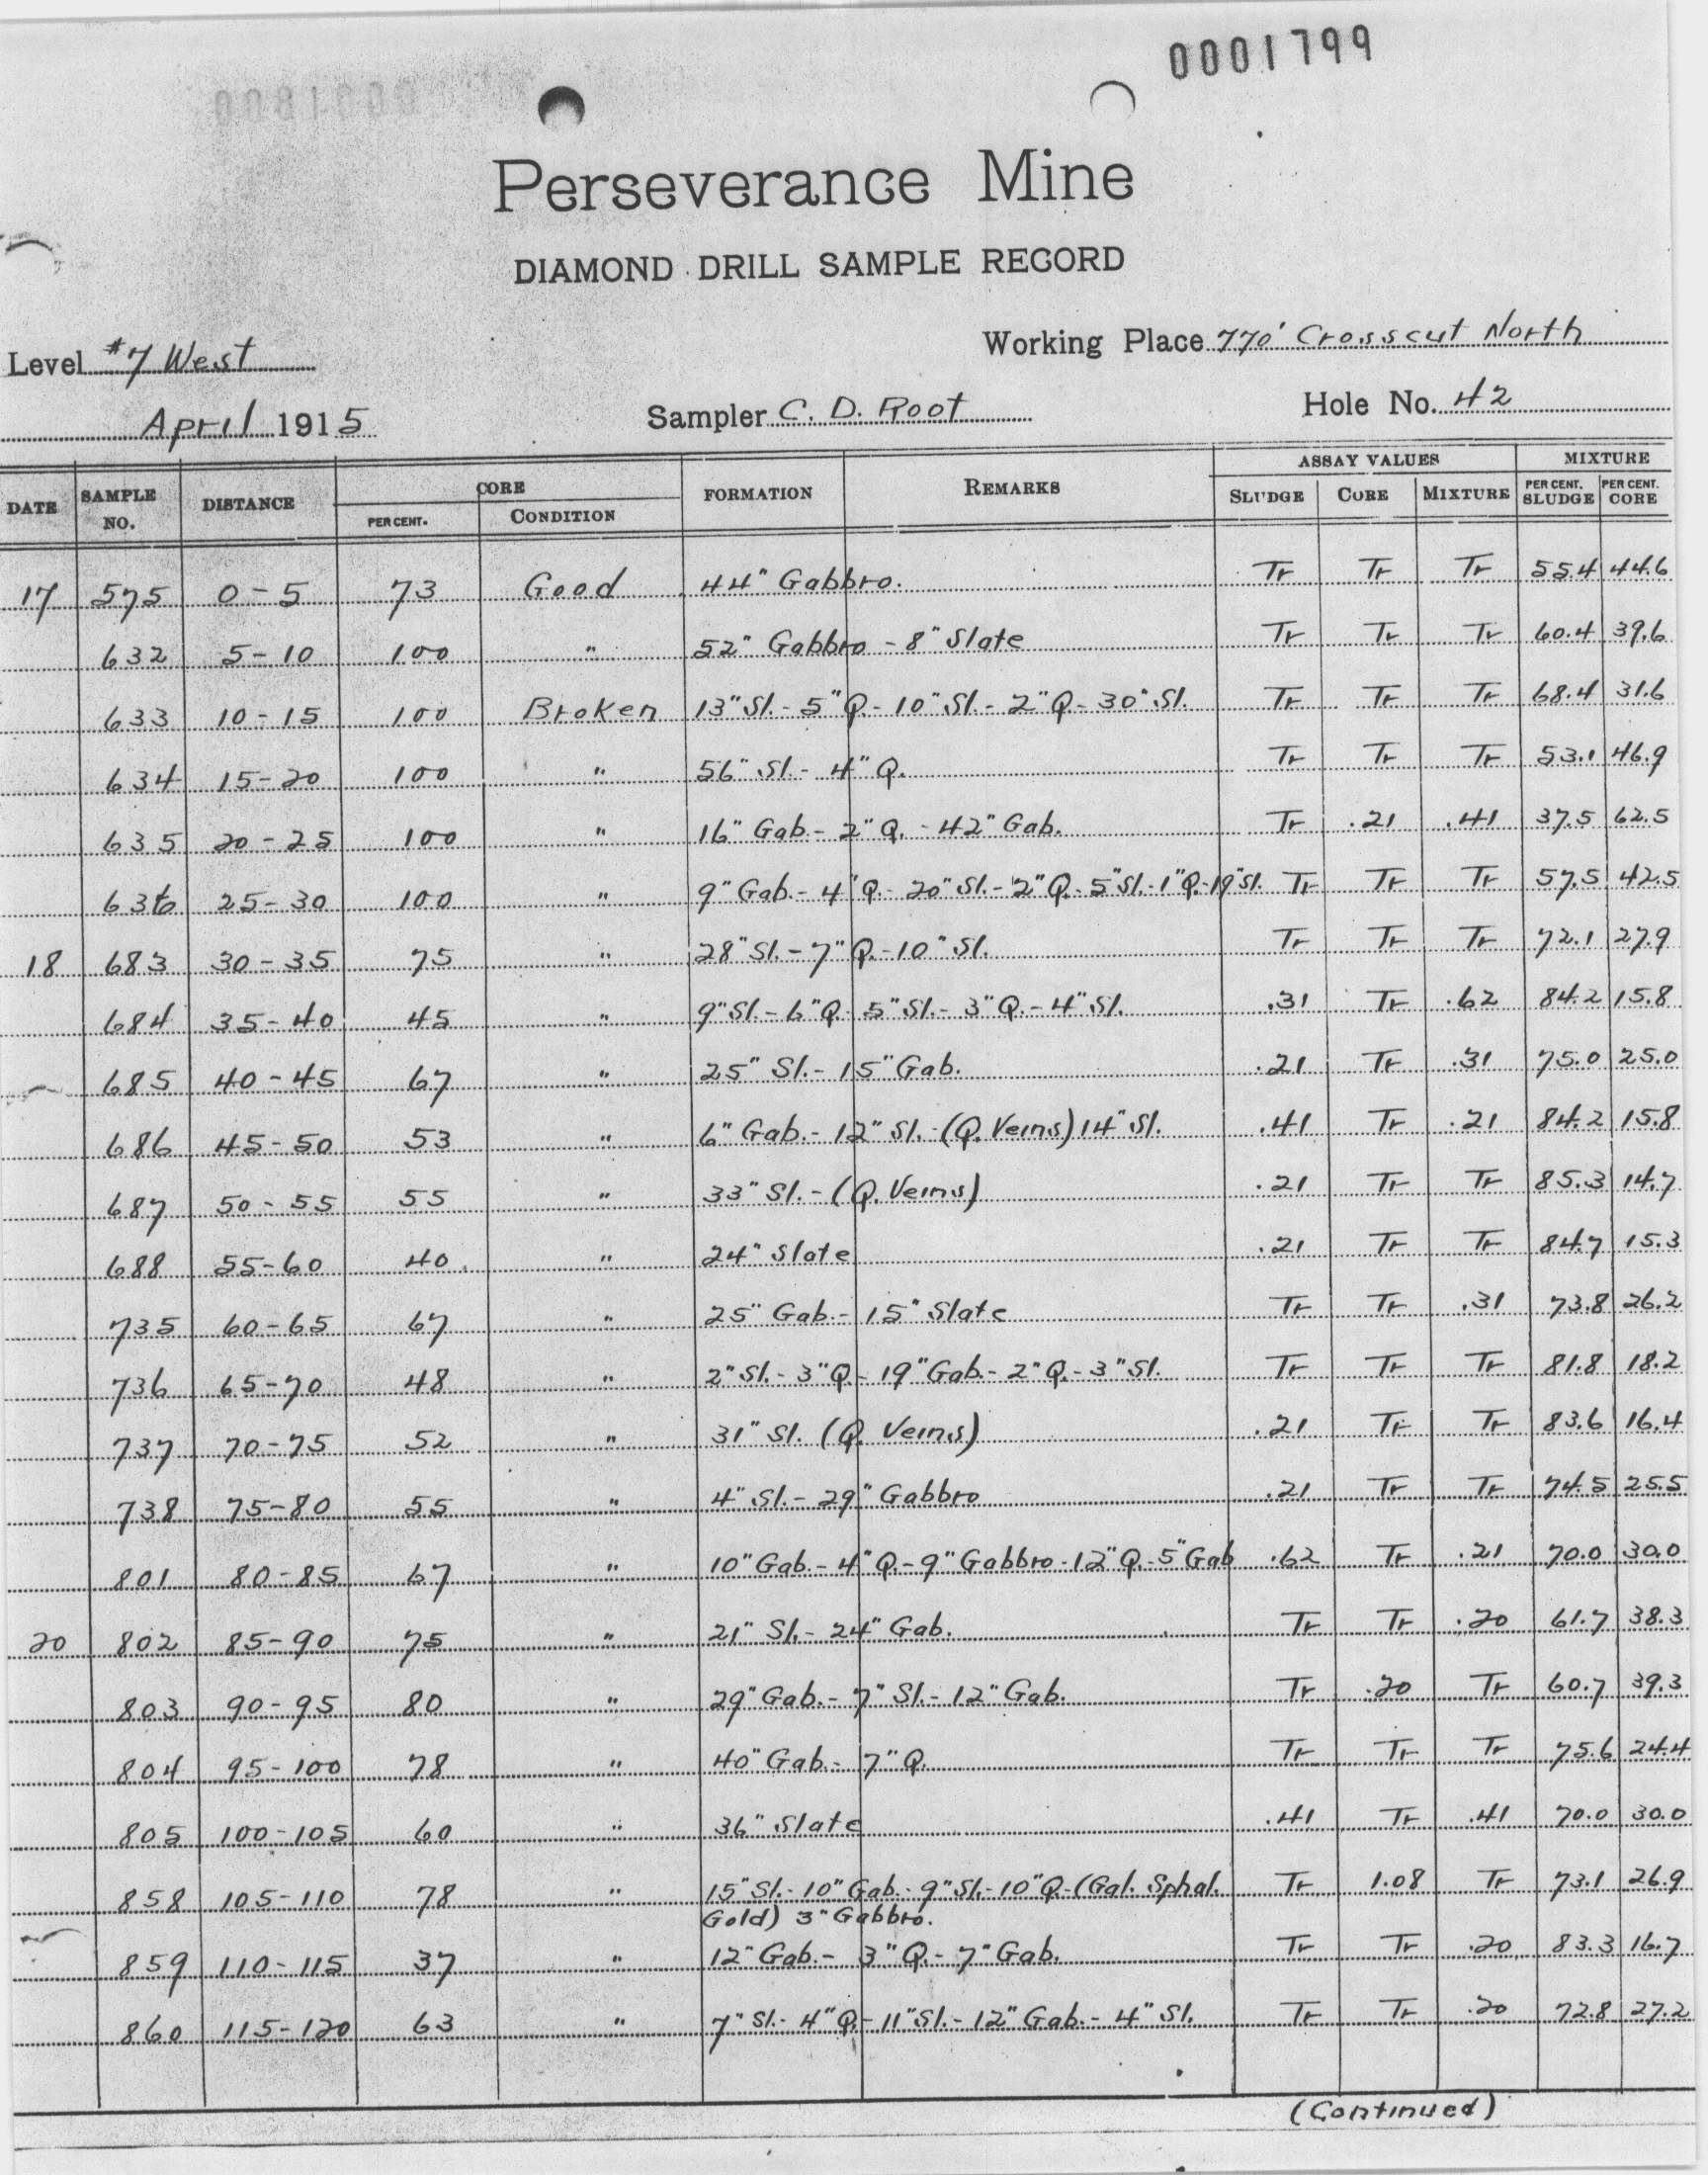 0001799
Perseverance Mine
DIAMOND DRILL SAMPLE RECORD
Level #7 West Working Place 770' Crosscut North
April 1915 Sampler C. D. Root Hole No. 42
DATE SAMPLE NO. DISTANCE CORE FORMATION REMARKS ASSAY VALUES MIXTURE
PER CENT. CONDITION SLUDGE CORE MIXTURE PER CENT. SLUDGE PER CENT. CORE
17 575 0-5 73 Good 44" Gabbro. Tr Tr Tr 55.4 44.6
632 5-10 100 " 52" Gabbro - 8" Slate Tr Tr Tr 60.4 39.6
633 10-15 100 Broken 13" Sl. - 5" Q. - 10" Sl. - 2" Q - 30" Sl. Tr Tr Tr 68.4 31.6
634 15-20 100 " 56" Sl. - 4" Q. Tr Tr Tr 53.1 46.9
635 20-25 100 " 16" Gab. - 2" Q. - 42" Gab. Tr .21 .41 37.5 62.5
636 25-30 100 " 9" Gab. - 4" Q. - 20" Sl. - 2" Q. - 5" Sl. - 1" Q. - 19" Sl. Tr Tr Tr 57.5 42.5
18 683 30-35 75 " 28" Sl. - 7" Q. - 10" Sl. Tr Tr Tr 72.1 27.9
684 35-40 45 " 9" Sl. - 6" Q. 5" Sl. - 3" Q. - 4" Sl. .31 Tr .62 84.2 15.8
685 40-45 67 " 25" Sl. - 15" Gab. .21 Tr .31 75.0 25.0
686 45-50 53 " 6" Gab. - 12" Sl. - (Q. Veins) 14" Sl. .41 Tr .21 84.2 15.8
687 50-55 55 " 33" Sl. - (Q. Veins) .21 Tr Tr 85.3 14.7
688 55-60 40 " 24" Slate .21 Tr Tr 84.7 15.3
735 60-65 67 " 25" Gab. - 15" Slate Tr Tr .31 73.8 26.2
736 65-70 48 " 2" Sl. - 3" Q. - 19" Gab. - 2" Q. - 3" Sl. Tr Tr Tr 81.8 18.2
737 70-75 52 " 31" Sl. (Q. Veins) .21 Tr Tr 83.6 16.4
738 75-80 55 " 4" Sl. - 29" Gabbro .21 Tr Tr 74.5 25.5
801 80-85 67 " 10" Gab. - 4" Q. - 9" Gabbro - 12" Q. - 5" Gab .62 Tr .21 70.0 30.0
20 802 85-90 75 " 21" Sl. - 24" Gab. Tr Tr .20 61.7 38.3
803 90-95 80 " 29" Gab. - 7" Sl. - 12" Gab. Tr .20 Tr 60.7 39.3
804 95-100 78 " 40" Gab. - 7" Q. Tr Tr Tr 75.6 24.4
805 100-105 60 " 36" Slate .41 Tr .41 70.0 30.0
858 105-110 78 " 15" Sl. - 10" Gab. - 9" Sl. - 10" Q - (Gal. Sphal. Tr 1.08 Tr 73.1 26.9
Gold) 3" Gabbro.
859 110-115 37 " 12" Gab. - 3" Q. - 7" Gab. Tr Tr .20 83.3 16.7
860 115-120 63 " 7" Sl. - 4" Q. - 11" Sl. - 12" Gab. - 4" Sl. Tr Tr .20 72.8 27.2
(Continued)